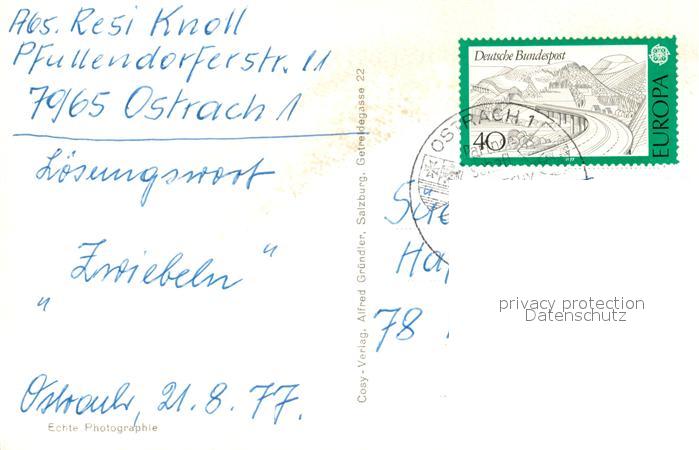 Abs. Resi Knoll
Pfullendorferstr. 11
7965 Ostrach 1
Lösungswort
„Zwiebeln"
Ostrach, 21.8.77.
Echte Photographie
Cosy-Verlag, Alfred Gründler, Salzburg, Getreidegasse 22
Deutsche Bundespost
40
EUROPA
OSTRACH 1
78
privacy protection
Datenschutz